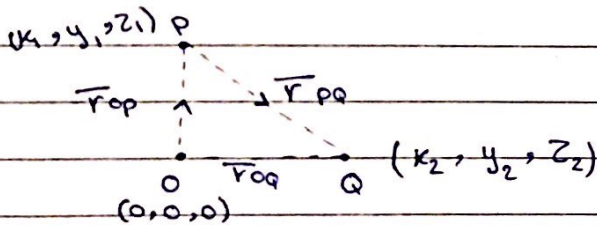 (x₁, y₁, z₁) P
r̅OP r̅PQ
O r̅OQ Q (x₂, y₂, z₂)
(0,0,0)